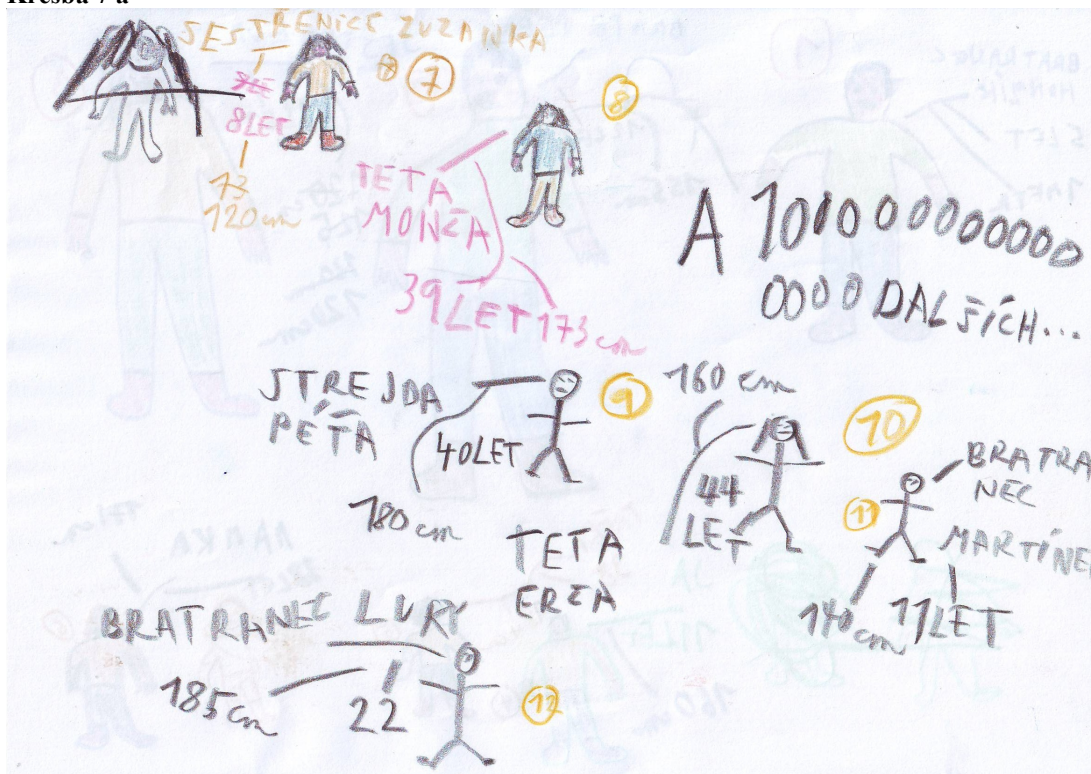 Kresba 7 a
SESTŘENICE ZUZANKA
7
8LET
120cm
8
TETA
MONČA
39LET 173cm
A 10100000000000
0000 DALŠÍCH...
STREJDA
PÉŤA
9
40LET
180cm
160 cm
10
44
LET
TETA
ERČA
BRATRA
NEC
11
MARTÍNEK
140cm 11LET
BRATRANEC LUKY
185cm 22
12